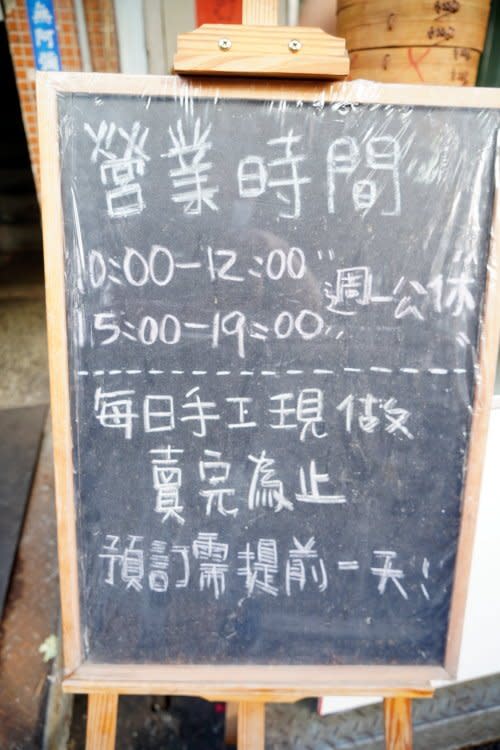 營業時間
10:00-12:00
15:00-19:00
週一公休
每日手工現做
賣完為止
預訂需提前一天!